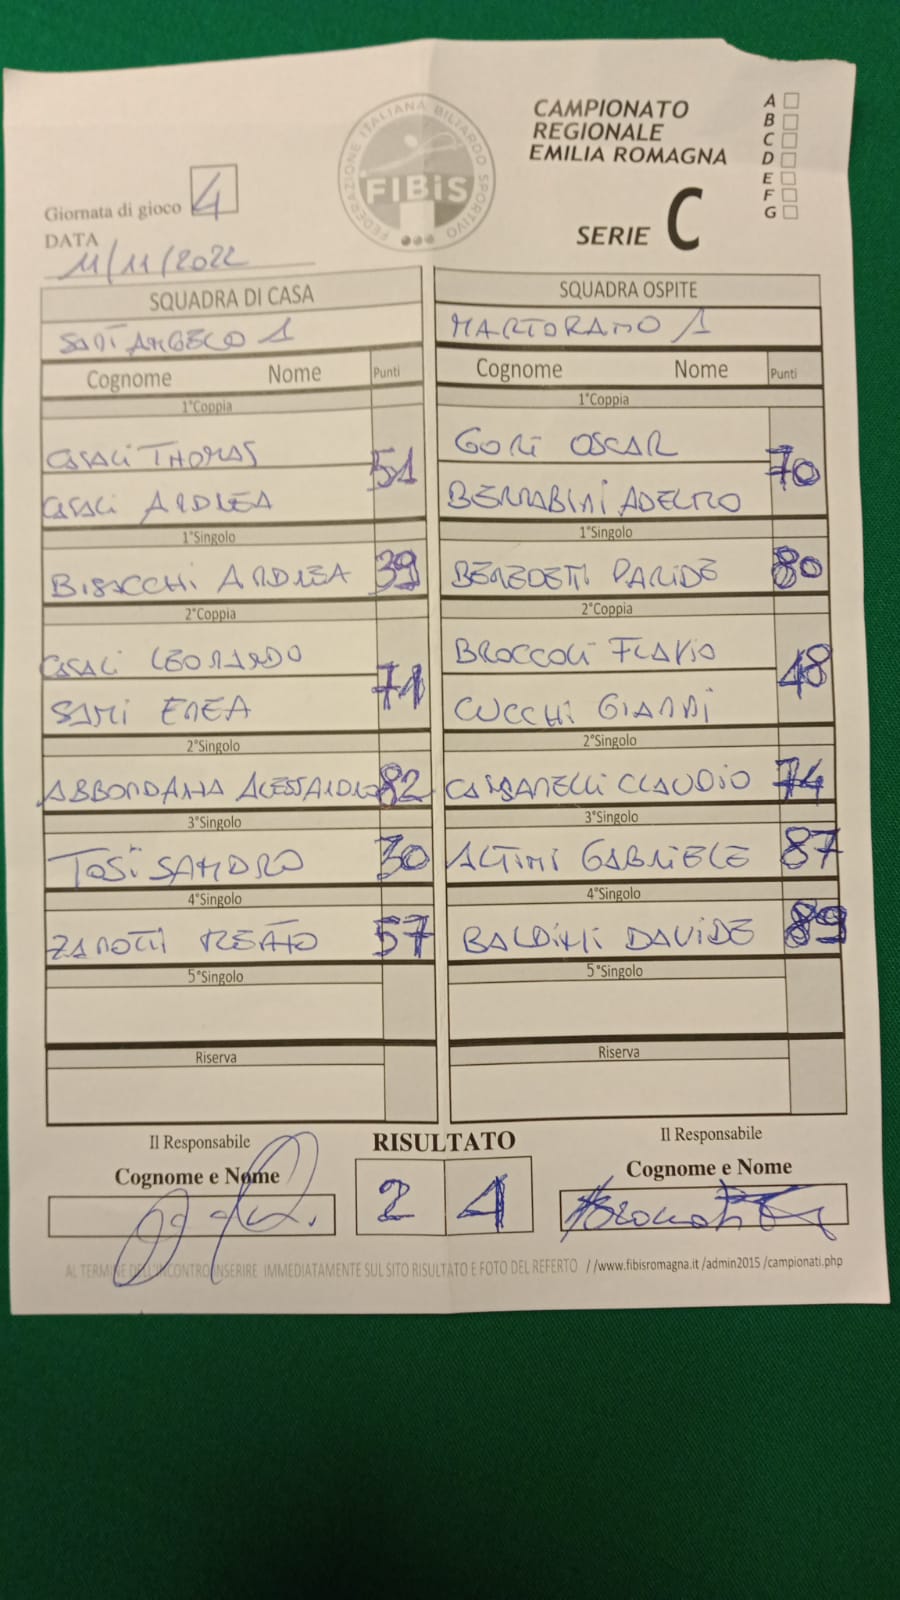 FEDERAZIONE ITALIANA BILIARDO SPORTIVO
FIBiS
CAMPIONATO
REGIONALE
EMILIA ROMAGNA
SERIE C
A
B
C
D
E
F
G
Giornata di gioco 4
DATA
11/11/2022
SQUADRA DI CASA SQUADRA OSPITE
SANT ANGELO 1 MARTORANO 1
Cognome Nome Punti Cognome Nome Punti
1°Coppia 1°Coppia
CASALI THOMAS 51 GORI OSCAR 70
CASALI ANDREA BERNABINI ADELMO
1°Singolo 1°Singolo
BISACCHI ANDREA 39 BENEDETTI PARIDE 80
2°Coppia 2°Coppia
CASALI LEONARDO 71 BROCCOLI FLAVIO 48
SAMI ENEA CUCCHI GIANNI
2°Singolo 2°Singolo
ABBONDANZA ALESSANDRO 82 CASSANELLI CLAUDIO 74
3°Singolo 3°Singolo
TOSI SANDRO 30 ALTINI GABRIELE 87
4°Singolo 4°Singolo
ZANOTTI RENATO 57 BALDINI DAVIDE 89
5°Singolo 5°Singolo
Riserva Riserva
Il Responsabile RISULTATO Il Responsabile
Cognome e Nome Cognome e Nome
2 4
AL TERMINE DELL'INCONTRO INSERIRE IMMEDIATAMENTE SUL SITO RISULTATO E FOTO DEL REFERTO //www.fibisromagna.it /admin2015 /campionati.php